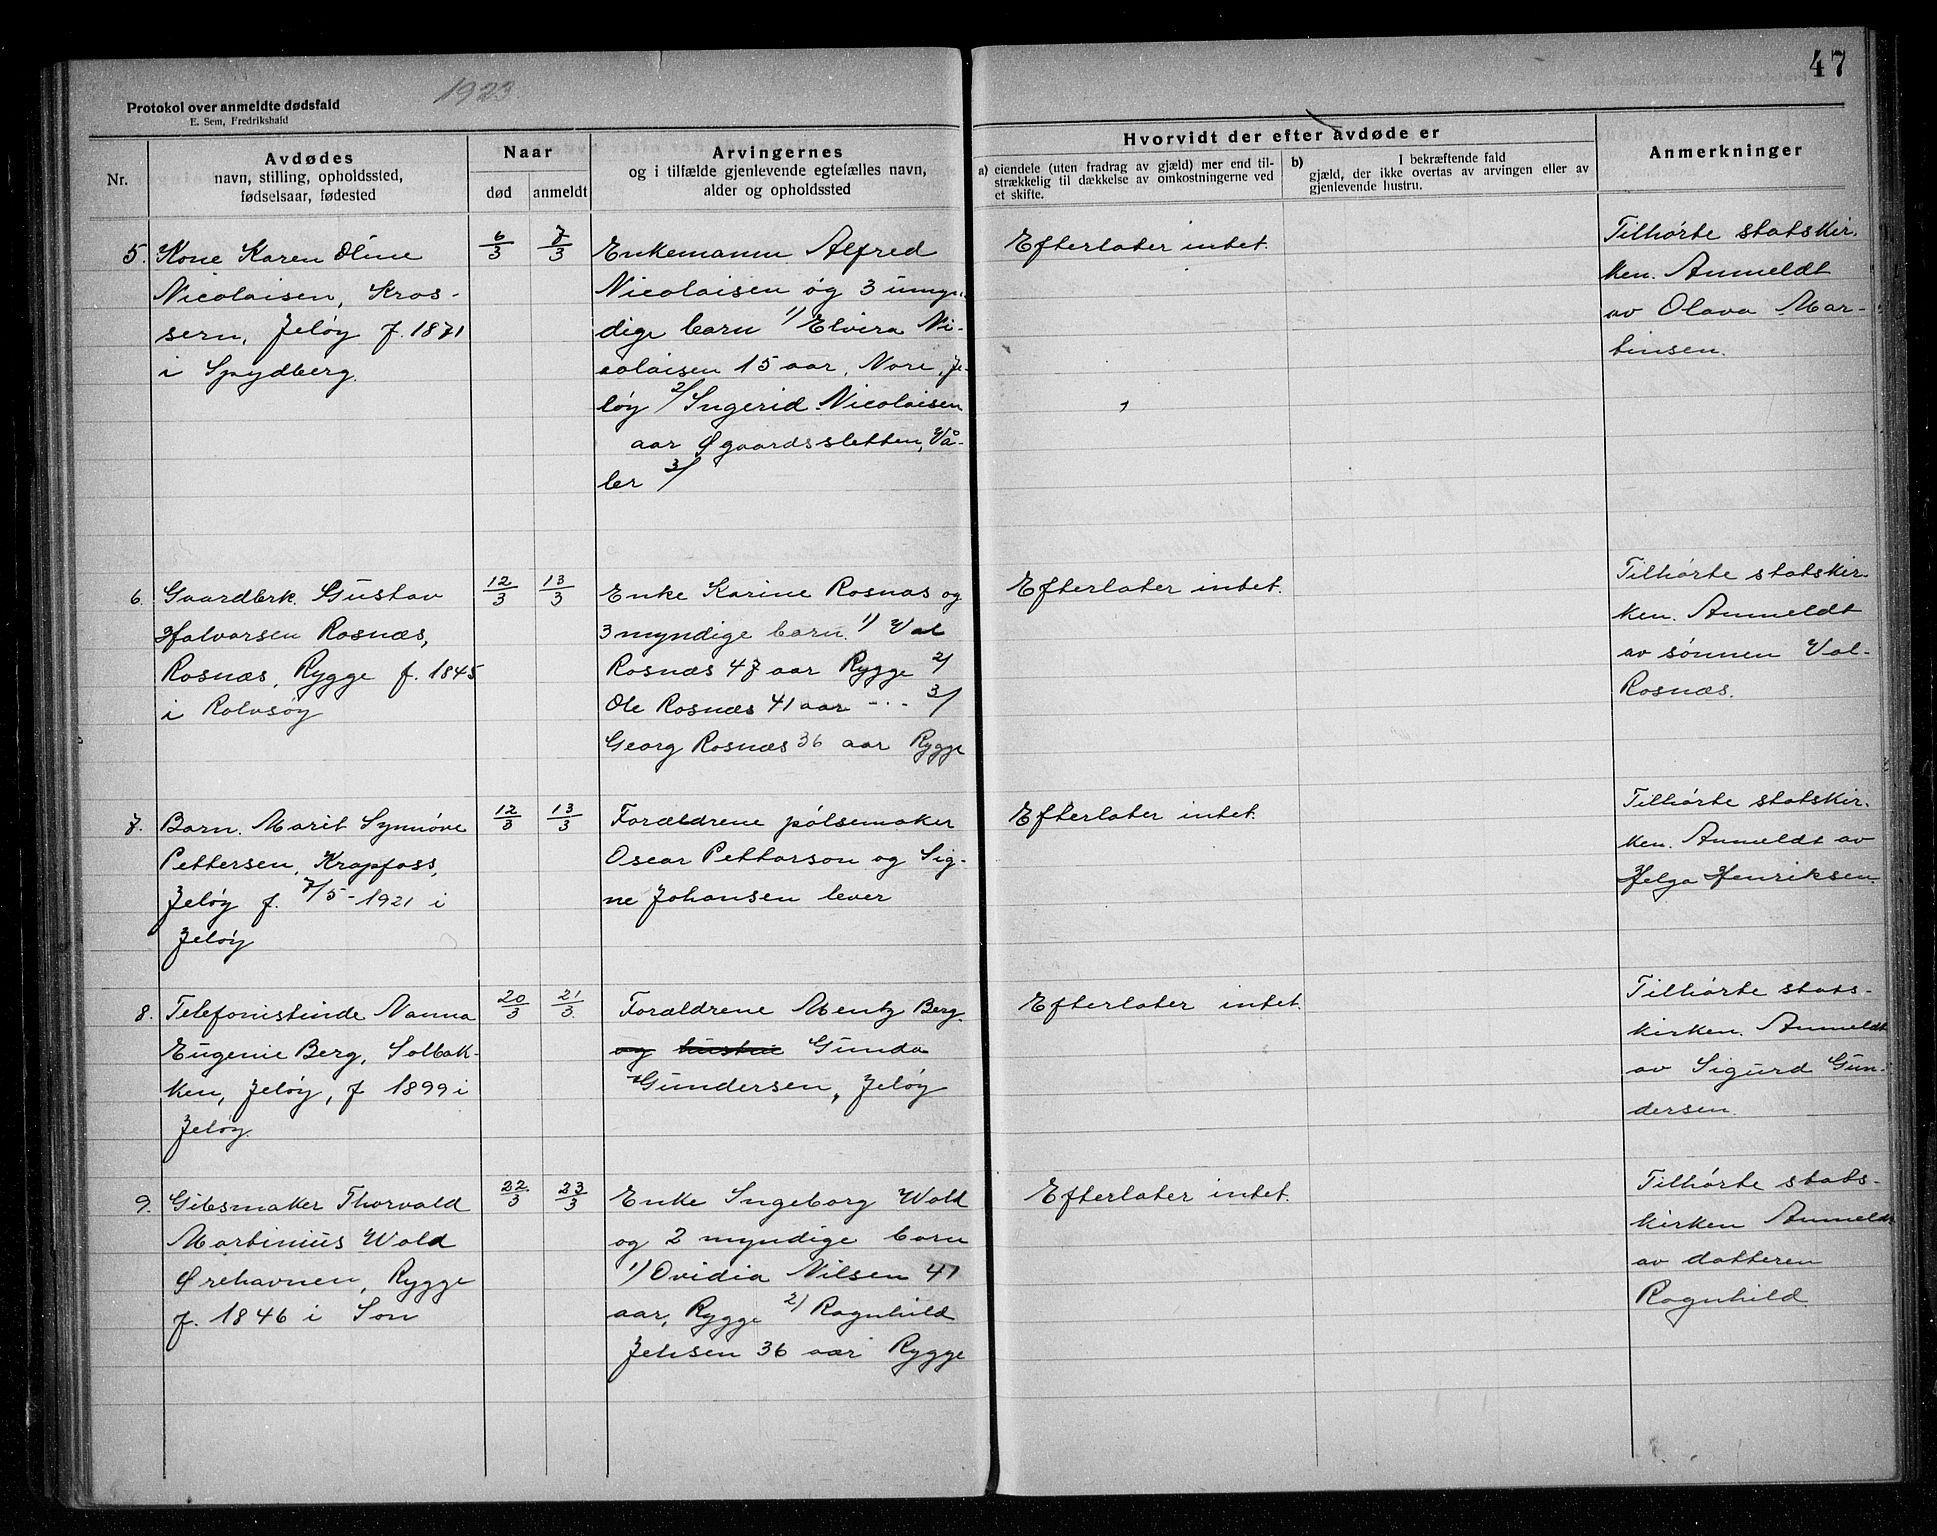 47
1923
Protokol over anmeldte dødsfald
E. Sem, Fredrikshald
Nr.
Avdødes
navn, stilling, opholdssted,
fødselsaar, fødested
Naar
død
anmeldt
Arvingernes
og i tilfælde gjenlevende egtefælles navn,
alder og opholdssted
Hvorvidt der efter avdøde er
a) eiendele (uten fradrag av gjæld) mer end til-
strækkelig til dækkelse av omkostningerne ved
et skifte.
b) I bekræftende fald
gjæld, der ikke overtas av arvingen eller av
gjenlevende hustru.
Anmerkninger
5.
Kone Karen Oline
Nicolaisen, Kros-
sern, Jeløy f. 1871
i Spydberg.
6/3
7/3
Enkemann Alfred
Nicolaisen og 3 umyn-
dige barn 1/ Elvira Ni-
colaisen 15 aar, Nore, Je-
løy 2/ Ingerid Nicolaisen
aar Øgaardssletten, Vå-
ler 3/
Efterlater intet.
Tilhørte statskir-
ken. Anmeldt
av Olava Mar-
tinsen.
6.
Gaardbrk. Gustav
Halvorsen Rosnæs,
Rosnæs, Rygge f. 1845
i Rolvsøy
12/3
13/3
Enke Karine Rosnæs og
3 myndige barn. 1/ Val
Rosnæs 47 aar Rygge 2/
Ole Rosnæs 41 aar -..- 3/
Georg Rosnæs 36 aar Rygge
Efterlater intet.
Tilhørte statskir-
ken. Anmeldt
av sønnen Val-
Rosnæs.
7.
Barn. Marit Synnøve
Pettersen, Krapfoss,
Jeløy f. 7/5-1921 i
Jeløy
12/3
13/3
Forældrene pølsemaker
Oscar Petterson og Sig-
ne Johansen lever
Efterlater intet.
Tilhørte statskir-
ken. Anmeldt av
Helga Henriksen.
8.
Telefonistinde Nanna
Eugenie Berg, Solbak-
ken, Jeløy, f 1899 i
Jeløy.
20/3
21/3.
Forældrene Mentz Berg.
og hustru Gunda
Gundersen, Jeløy
Efterlater intet.
Tilhørte stats-
kirken. Anmeldt
av Sigurd Gun-
dersen.
9.
Gibsmaker Thorvald
Martinius Wold
Ørehavnen, Rygge
f. 1846 i Son
22/3
23/3
Enke Ingeborg Wold
og 2 myndige barn
1/ Ovidia Nilsen 41
aar, Rygge 2/ Ragnhild
Jensen 36 aar Rygge
Efterlater intet.
Tilhørte stats-
kirken Anmeldt
av datteren
Ragnhild.